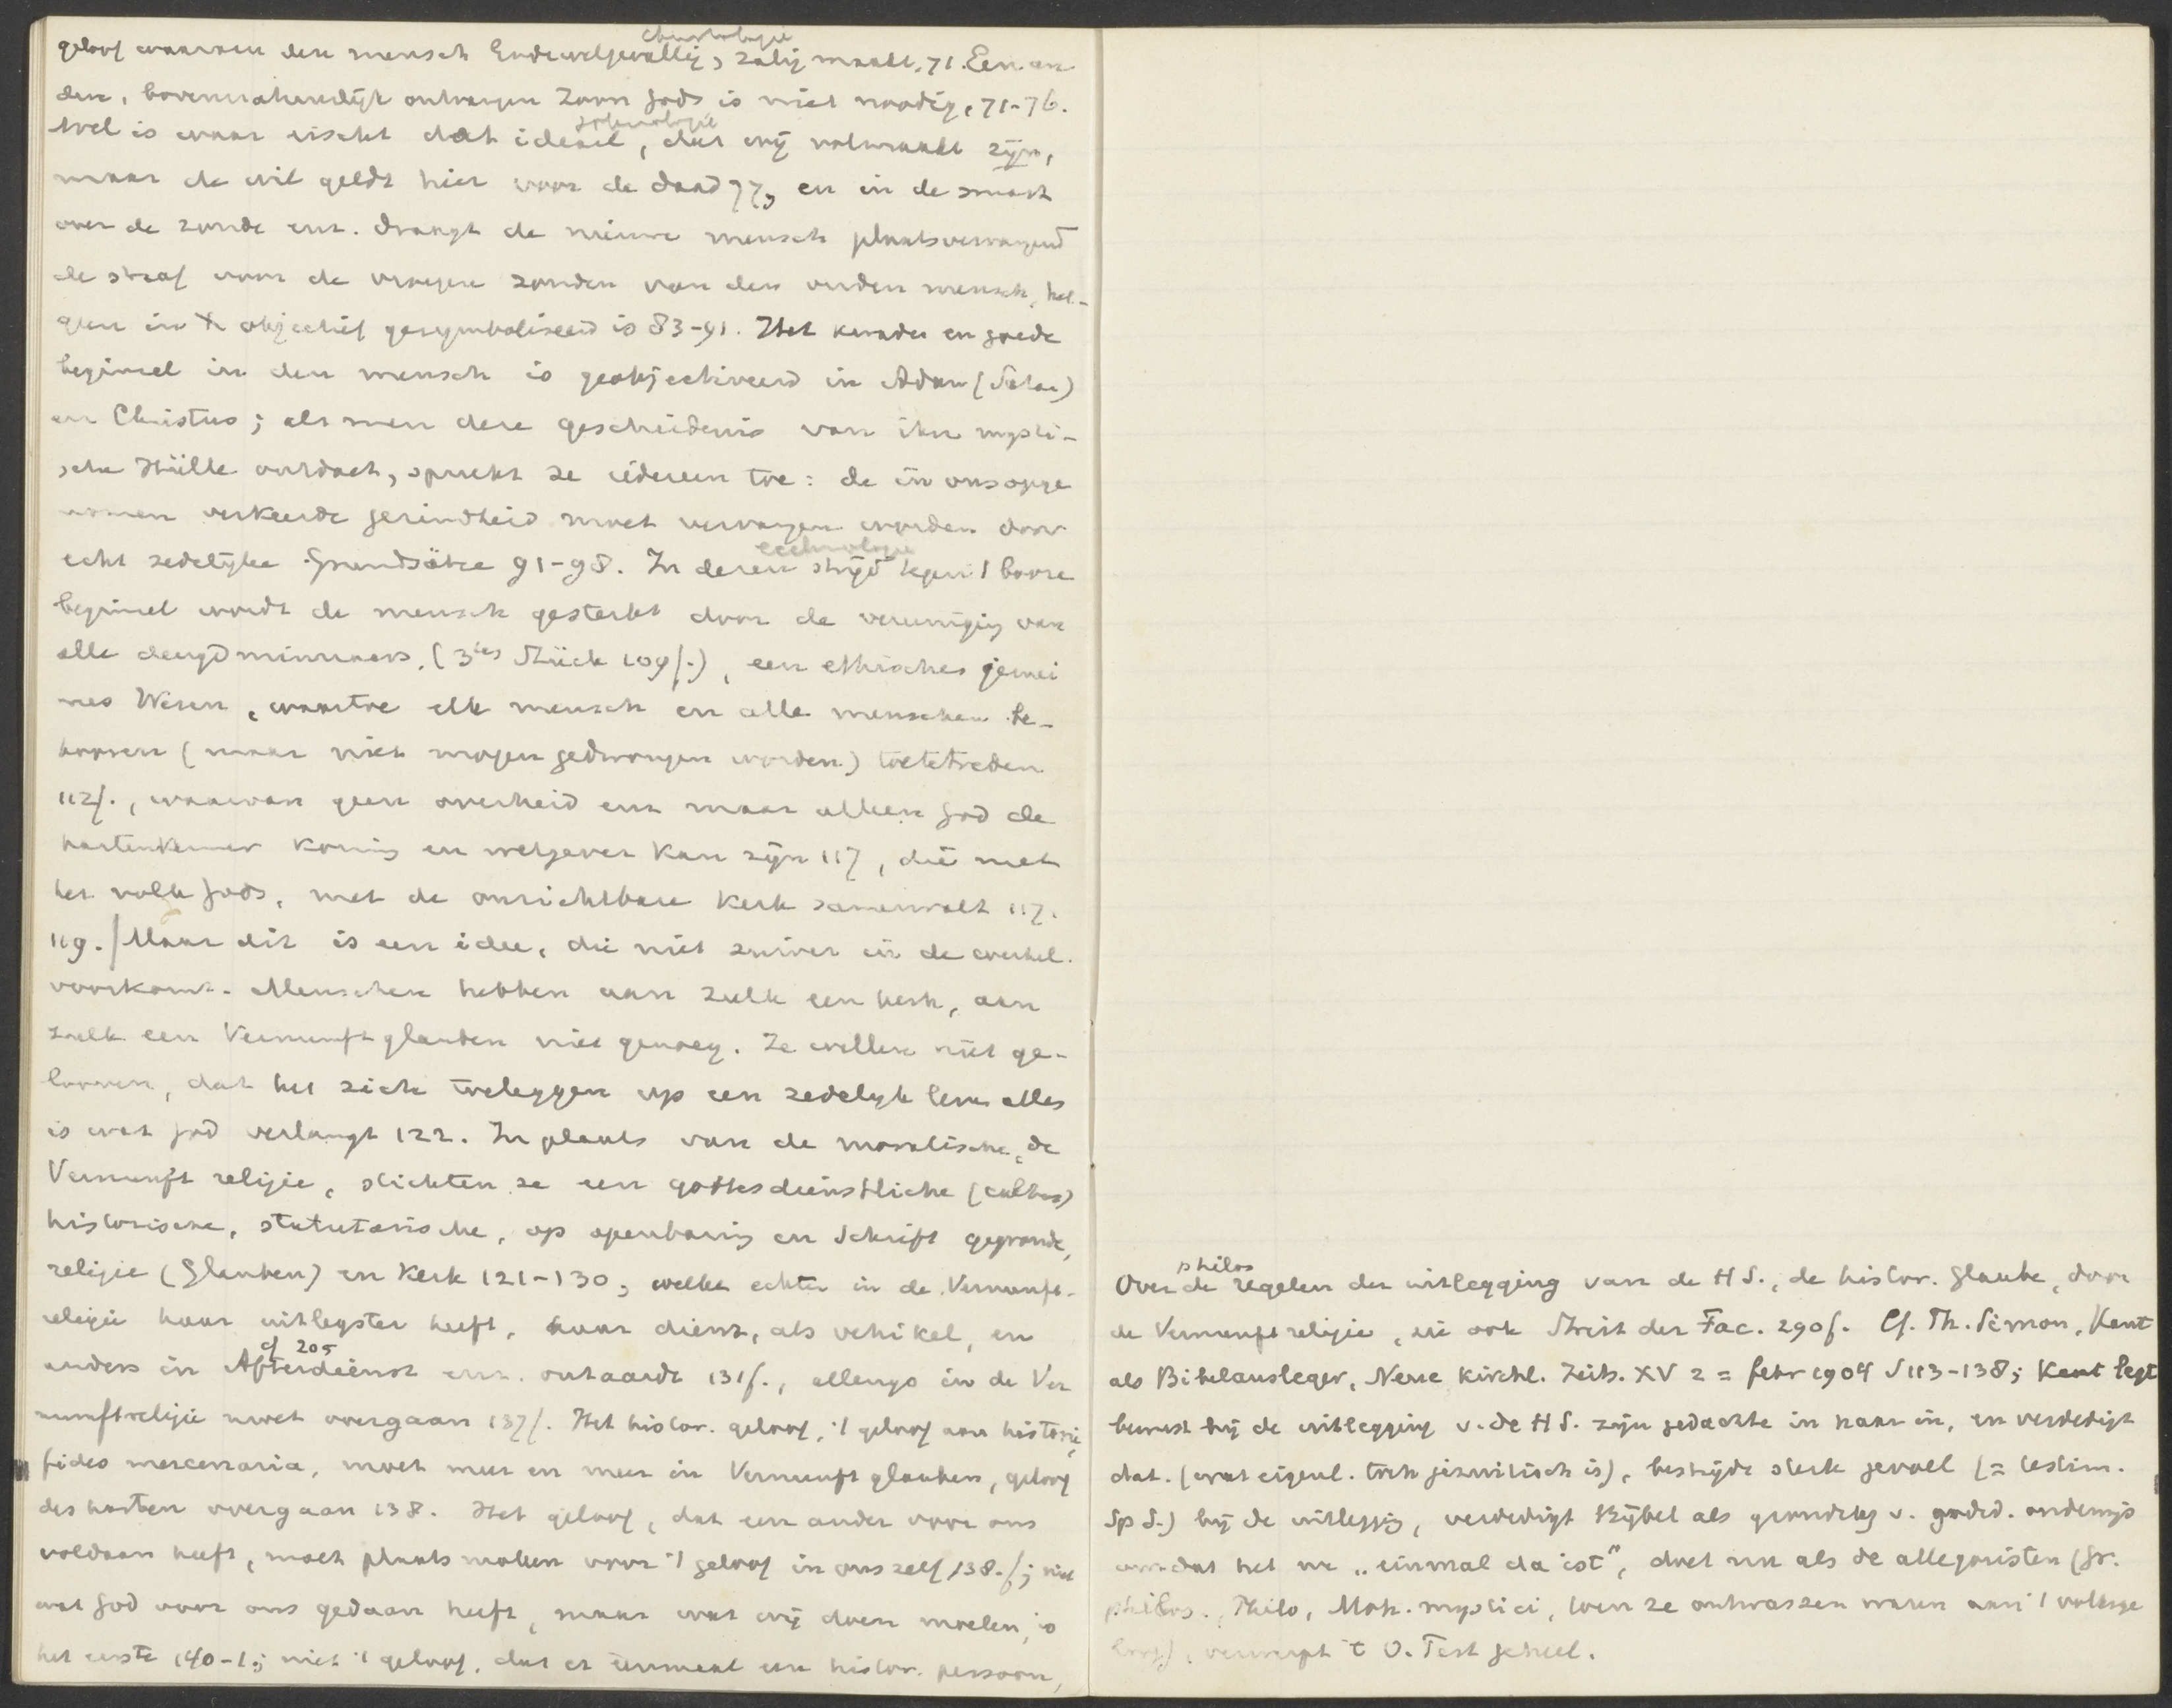 christologie
geloof waarvan den mensch Godewelgevallig, zalig maakt, 71. Een an
dere, bovennatuurlijk ontvangen Zoon Gods is niet noodig, 71-76.
soteriologie
Wel is waar eischt dat ideaal, dat wij volmaakt zijn,
maar de wil geldt hier voor de daad 77, en in de smart
over de zonde enz. draagt de nieuwe mensch plaatsvervangend
de straf voor de vroegere zonden van den ouden mensch, het-
geen in X objectief gesymboliseerd is 83-91. Het kwade en goede
beginsel in den mensch is geobjectiveerd in Adam (Satan)
en Christus; als men deze geschiedenis van ihre mysti-
sche Hülle ontdoet, spreekt ze iedereen toe: de in ons opge
nomen verkeerde gezindheid moet vervangen worden door
ecclesiologie
echt zedelijke Grundsätze 91-98. In dezen strijd tegen 't booze
beginsel wordt de mensch gesterkt door de vereeniging van
alle deugdminnaars, (3tes Stück 109f.), een ethisches gemei
nes Wesen, waartoe elk mensch en alle menschen be-
hooren (maar niet mogen gedwongen worden) toetetreden
112f., waarvan geen overheid enz maar alleen God de
hartenkenner koning en wetgever kan zijn 117, die met
het volk Gods, met de onzichtbare kerk samenvalt 117.
119. | Maar dit is een idee, die niet zuiver in de werkel.
voorkomt. Menschen hebben aan zulk een kerk, aan
zulk een Vernunftglauben niet genoeg. Ze willen niet ge-
looven, dat het zich toeleggen op een zedelijk leven alles
is wat God verlangt 122. In plaats van de moralische, de
Vernunft religie, stichten ze een gottesdienstliche (cultus)
historische, statutarische, op openbaring en Schrift gegronde,
religie (Glauben) en Kerk 121-130; welke echter in de Vernunft-
religie haar uitlegster heeft, haar dient, als vehikel, en
cf 205
anders in Afterdienst enz. ontaardt 131f., allengs in de Ver
nunftreligie moet overgaan 137f. Het histor. geloof, 't geloof aan historie,
fides mercenaria, moet meer en meer in Vernunft glauben, geloof
des harten overgaan 138. Het geloof, dat een ander voor ons
voldaan heeft, moet plaats maken voor 't geloof in ons zelf 138.f; niet
wat God voor ons gedaan heeft, maar wat wij doen moeten, is
het eerste 140-1; niet 't geloof, dat er eenmaal een histor. persoon,
philos
Over de regelen der uitlegging van de H S., de histor. Glaube, door
de Vernunftreligie, zie ook Streit der Fac. 290f. Cf. Th. Simon, Kant
als Bibelausleger, Neue kirchl. Zeits. XV 2 = febr 1904 S 113-138; Kant legt
bewust bij de uitlegging v. de H S. zijn gedachte in haar in, en verdedigt
dat. (wat eigenl. toch jezuitisch is), bestrijdt sterk gevoel (= testim.
Sp S.) bij de uitlegging, verdedigt Bijbel als grondslag v. godsd. onderwijs
omdat het nu „einmal da ist", doet nu als de allegoristen (gr.
philos., Philo, Moh. mystici, toen ze ontwassen waren aan 't volksge
loof), verwerpt 't O. Test geheel.